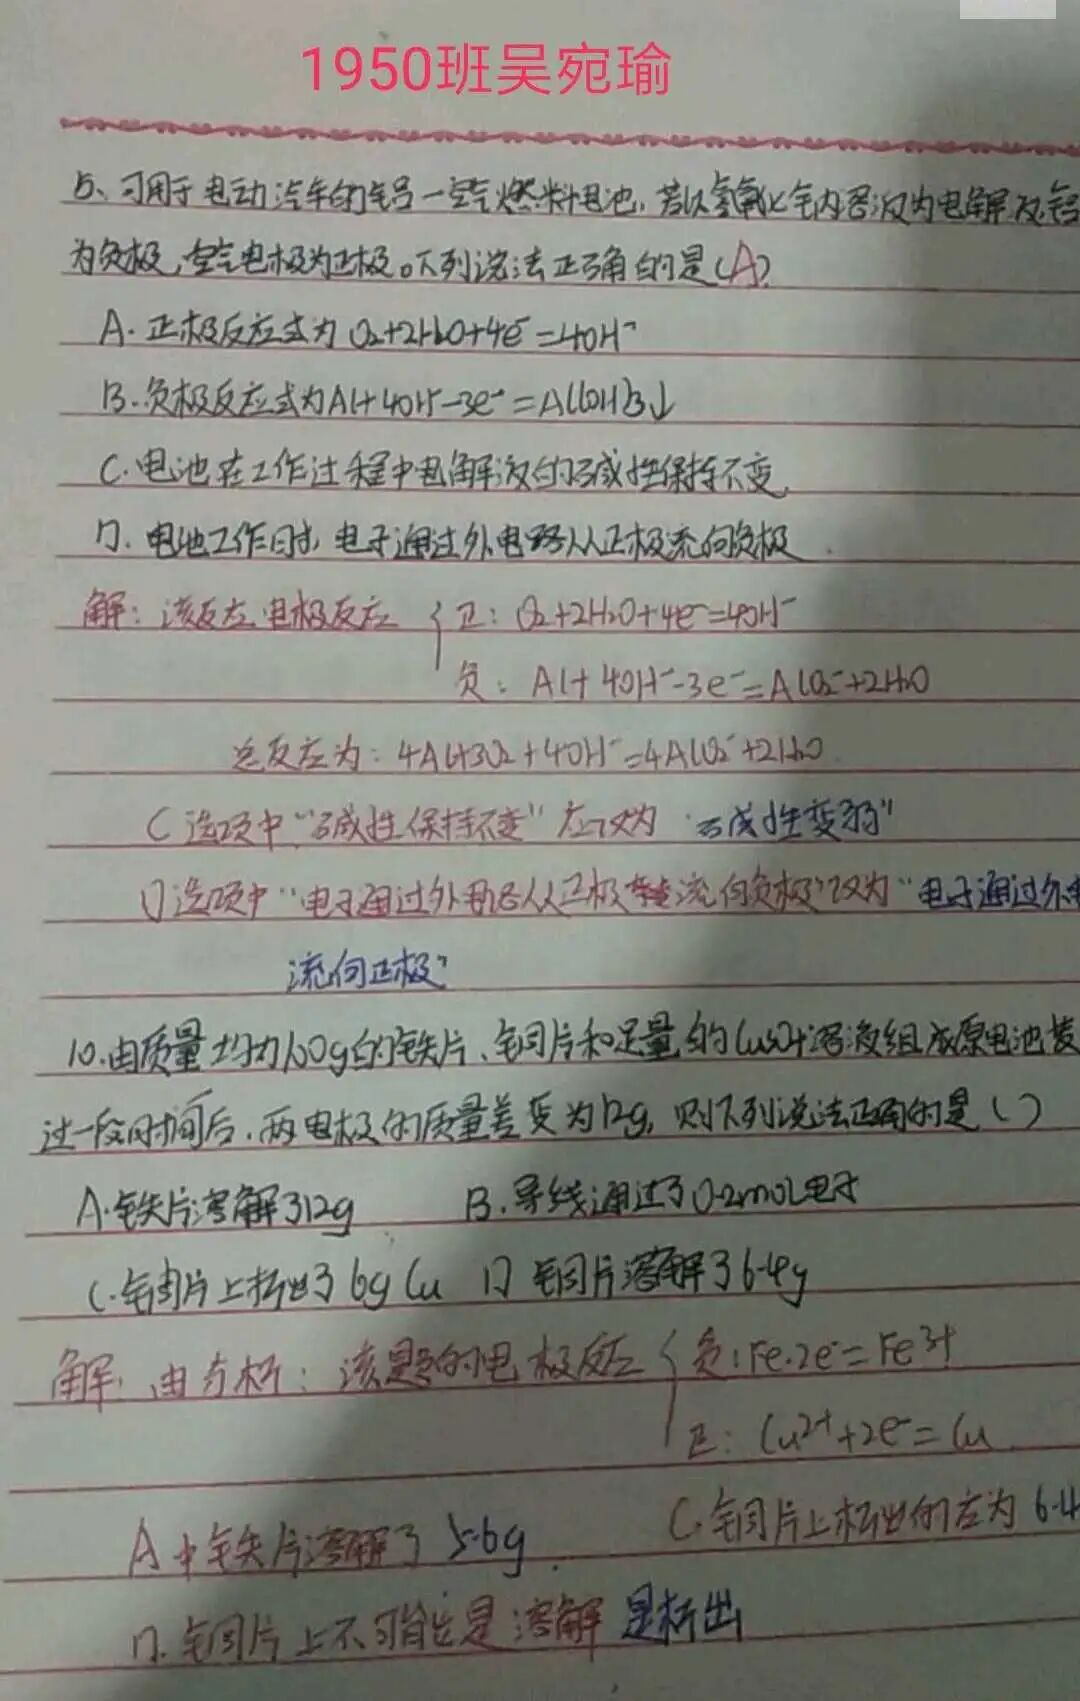 1950班吴宛瑜
5、可用于电动汽车的铝一空气燃料电池，若以氢氧化钠溶液为电解液，铝
为负极，空气电极为正极。下列说法正确的是(A)
A. 正极反应式为 O₂+2H₂O+4e⁻=4OH⁻
B. 负极反应式为Al+4OH⁻-3e⁻=Al(OH)3↓
C. 电池在工作过程中电解液的碱性保持不变
D. 电池工作时，电子通过外电路从正极流向负极
解：该反应电极反应 { 正：O₂+2H₂O+4e⁻=4OH⁻
负：Al+4OH⁻-3e⁻=AlO₂⁻+2H₂O
总反应为：4Al+3O₂+4OH⁻=4AlO₂⁻+2H₂O
C选项中"碱性保持不变"应改为"碱性变弱"
D选项中"电子通过外电路从正极流向负极"改为"电子通过外
流向正极"
10.由质量均为100g的铁片、铜片和足量的CuSO4溶液组成原电池装
过一段时间后，两电极的质量差变为12g，则下列说法正确的是（）
A.铁片溶解了12g B.导线通过了0.2mol电子
C.铜片上析出了6g Cu D 铜片溶解了6.4g
解：由分析：该题的电极反应 { 负：Fe-2e⁻=Fe³⁺
正：Cu²⁺+2e⁻=Cu
A中铁片溶解了5.6g C.铜片上析出的应为6.4
D.铜片上不可能是溶解 是析出